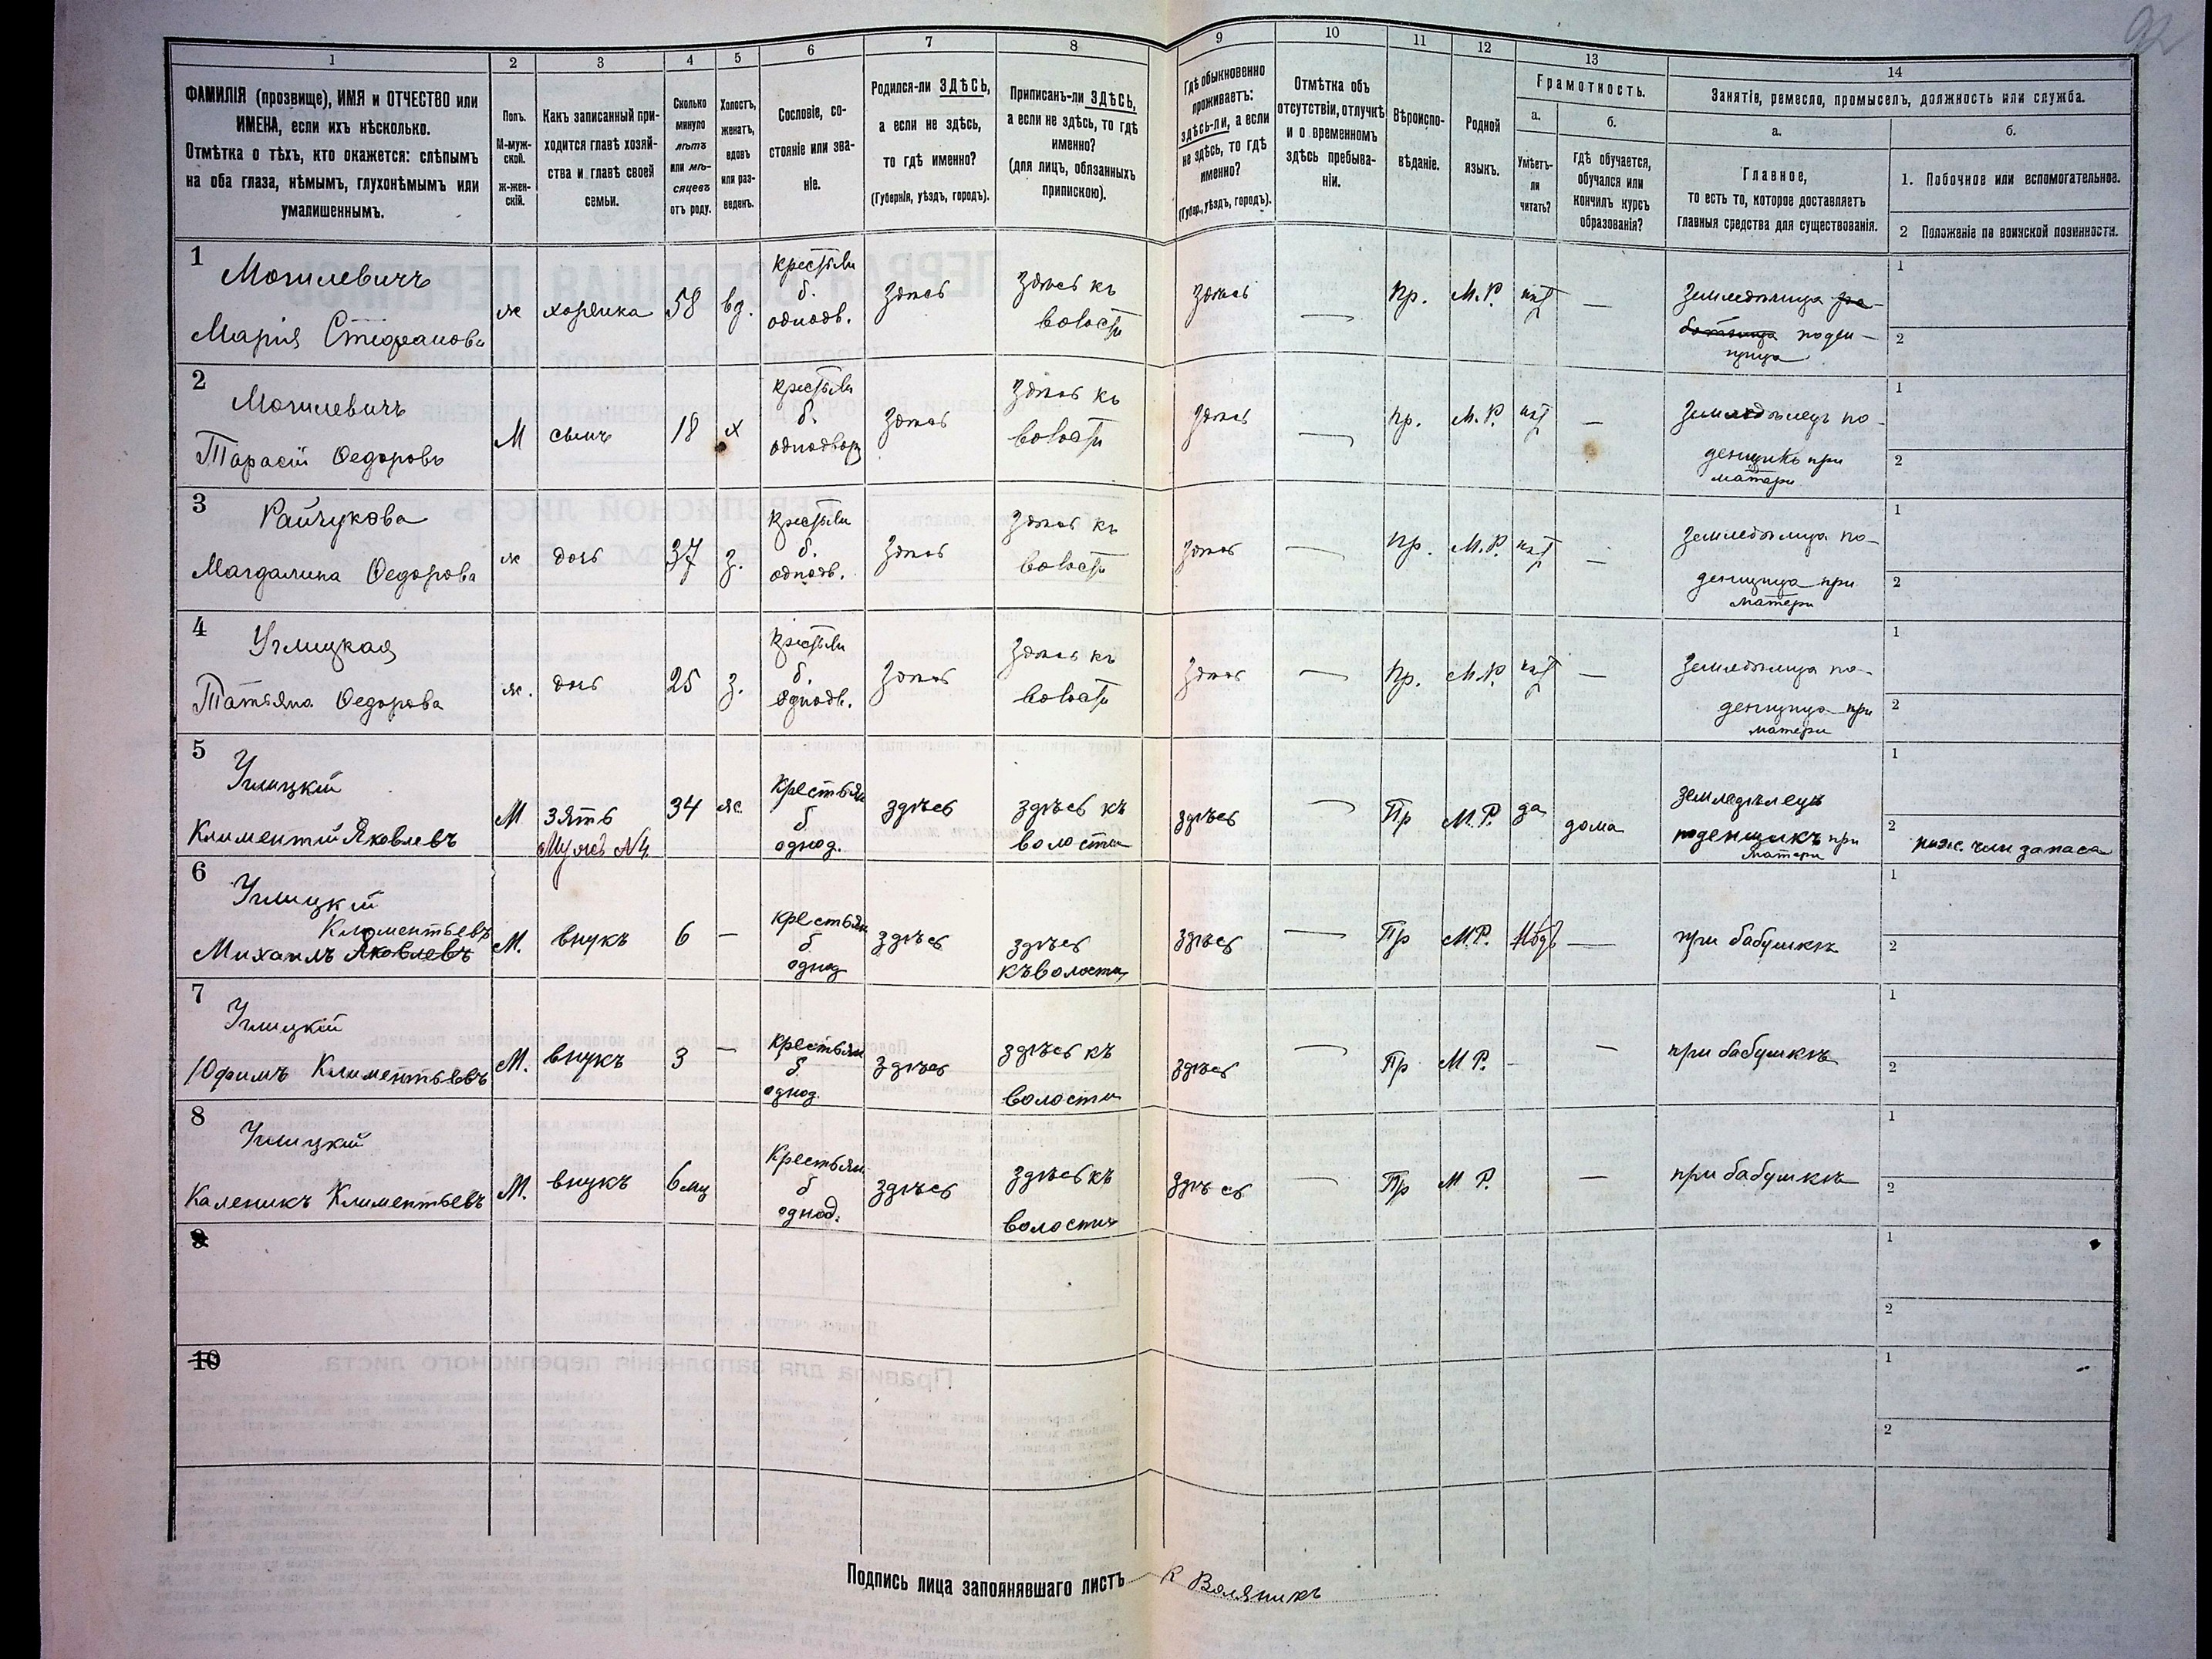 92
1
2
3
4
5
6
7
8
9
10
11
12
13
14
ФАМИЛІЯ (прозвище), ИМЯ и ОТЧЕСТВО или
ИМЕНА, если ихъ нѣсколько.
Отмѣтка о тѣхъ, кто окажется: слѣпымъ
на оба глаза, нѣмымъ, глухонѣмымъ или
умалишеннымъ.
Полъ.
М-муж-
ской.
ж-жен-
скій.
Какъ записанный при-
ходится главѣ хозяй-
ства и главѣ своей
семьи.
Сколько
минуло
лѣтъ
или мѣ-
сяцевъ
отъ роду.
Холостъ,
женатъ,
вдовъ
или раз-
веденъ.
Сословіе, со-
стояніе или зва-
ніе.
Родился-ли ЗДѢСЬ,
а если не здѣсь,
то гдѣ именно?
(Губернія, уѣздъ, городъ).
Приписанъ-ли ЗДѢСЬ,
а если не здѣсь, то гдѣ
именно?
(для лицъ, обязанныхъ
припискою).
Гдѣ обыкновенно
проживаетъ:
здѣсь-ли, а если
не здѣсь, то гдѣ
именно?
(Губер., уѣздъ, городъ).
Отмѣтка объ
отсутствіи, отлучкѣ
и о временномъ
здѣсь пребыва-
ніи.
Вѣроиспо-
вѣданіе.
Родной
языкъ.
Грамотность.
а.
Умѣетъ-
ли
читать?
б.
гдѣ обучается,
обучался или
кончилъ курсъ
образованія?
Занятіе, ремесло, промыселъ, должность или служба.
а.
Главное,
то есть то, которое доставляетъ
главныя средства для существованія.
б.
1. Побочное или вспомогательное.
2 Положеніе по воинской повинности.
1
Могилевичъ
Марія Стефанова
ж
хозяйка
58
вд.
крестьян
б.
однодв.
здѣсь
здѣсь къ
волости
здѣсь
—
Пр.
М.Р.
нѣт
—
земледѣлица ра-
ботница поден-
щица
1
2
2
Могилевичъ
Тарасій Федоровъ
М
сынъ
18
х
крестьян
б.
однодвор
здѣсь
здѣсь къ
волости
здѣсь
—
Пр.
М.Р.
нѣт
—
земледѣлецъ по-
денщикъ при
матери
1
2
3
Райчукова
Магдалина Федорова
ж
дочь
37
з.
крестьян
б.
однодв.
здѣсь
здѣсь къ
волости
здѣсь
—
Пр.
М.Р.
нѣт
—
земледѣлица по-
денщица при
матери
1
2
4
Углицкая
Татьяна Федорова
ж.
дочь
25
з.
крестьян
б.
однодв.
здѣсь
здѣсь къ
волости
здѣсь
—
Пр.
М.Р.
нѣт
—
земледѣлица по-
денщица при
матери
1
2
5
Углицкій
Климентій Яковлевъ
М
зять
Мужъ №4
34
ж.
крестьян
б
однод.
здѣсь
здѣсь къ
волости
здѣсь
—
Пр
М.Р.
да
дома
земледѣлецъ
поденщикъ при
матери
1
2
ниж. чин запаса
6
Углицкій
Климентьевъ
Михаилъ Яковлевъ
М.
внукъ
6
—
крестьян
б
однод
здѣсь
здѣсь
къ волости
здѣсь
—
Пр
М.Р.
—
при бабушкѣ
1
2
7
Углицкій
Юфимъ Климентьевъ
М.
внукъ
3
—
крестьян
б
однод.
здѣсь
здѣсь къ
волости
здѣсь
—
Пр
М Р.
-
—
при бабушкѣ
1
2
8
Углицкій
Каленикъ Климентьевъ
М.
внукъ
6 мц
Крестьян
б
однод.
здѣсь
здѣсь къ
волости
здѣсь
—
Пр
М Р.
—
при бабушкѣ
1
2
9
1
2
10
1
2
Подпись лица заполнявшаго листъ